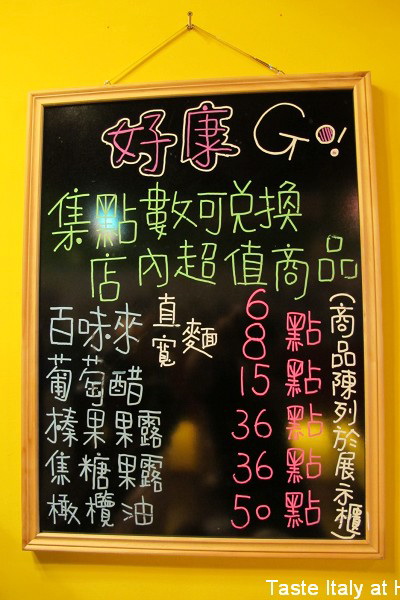 好康 Go!
集點數可兌換
店內超值商品
百味來 直 麵 6 點
寬 8
葡萄醋 15 點
榛果果露 36 點
焦糖果露 36 點
橄欖油 50 點
(商品陳列於展示櫃)
Taste Italy at H